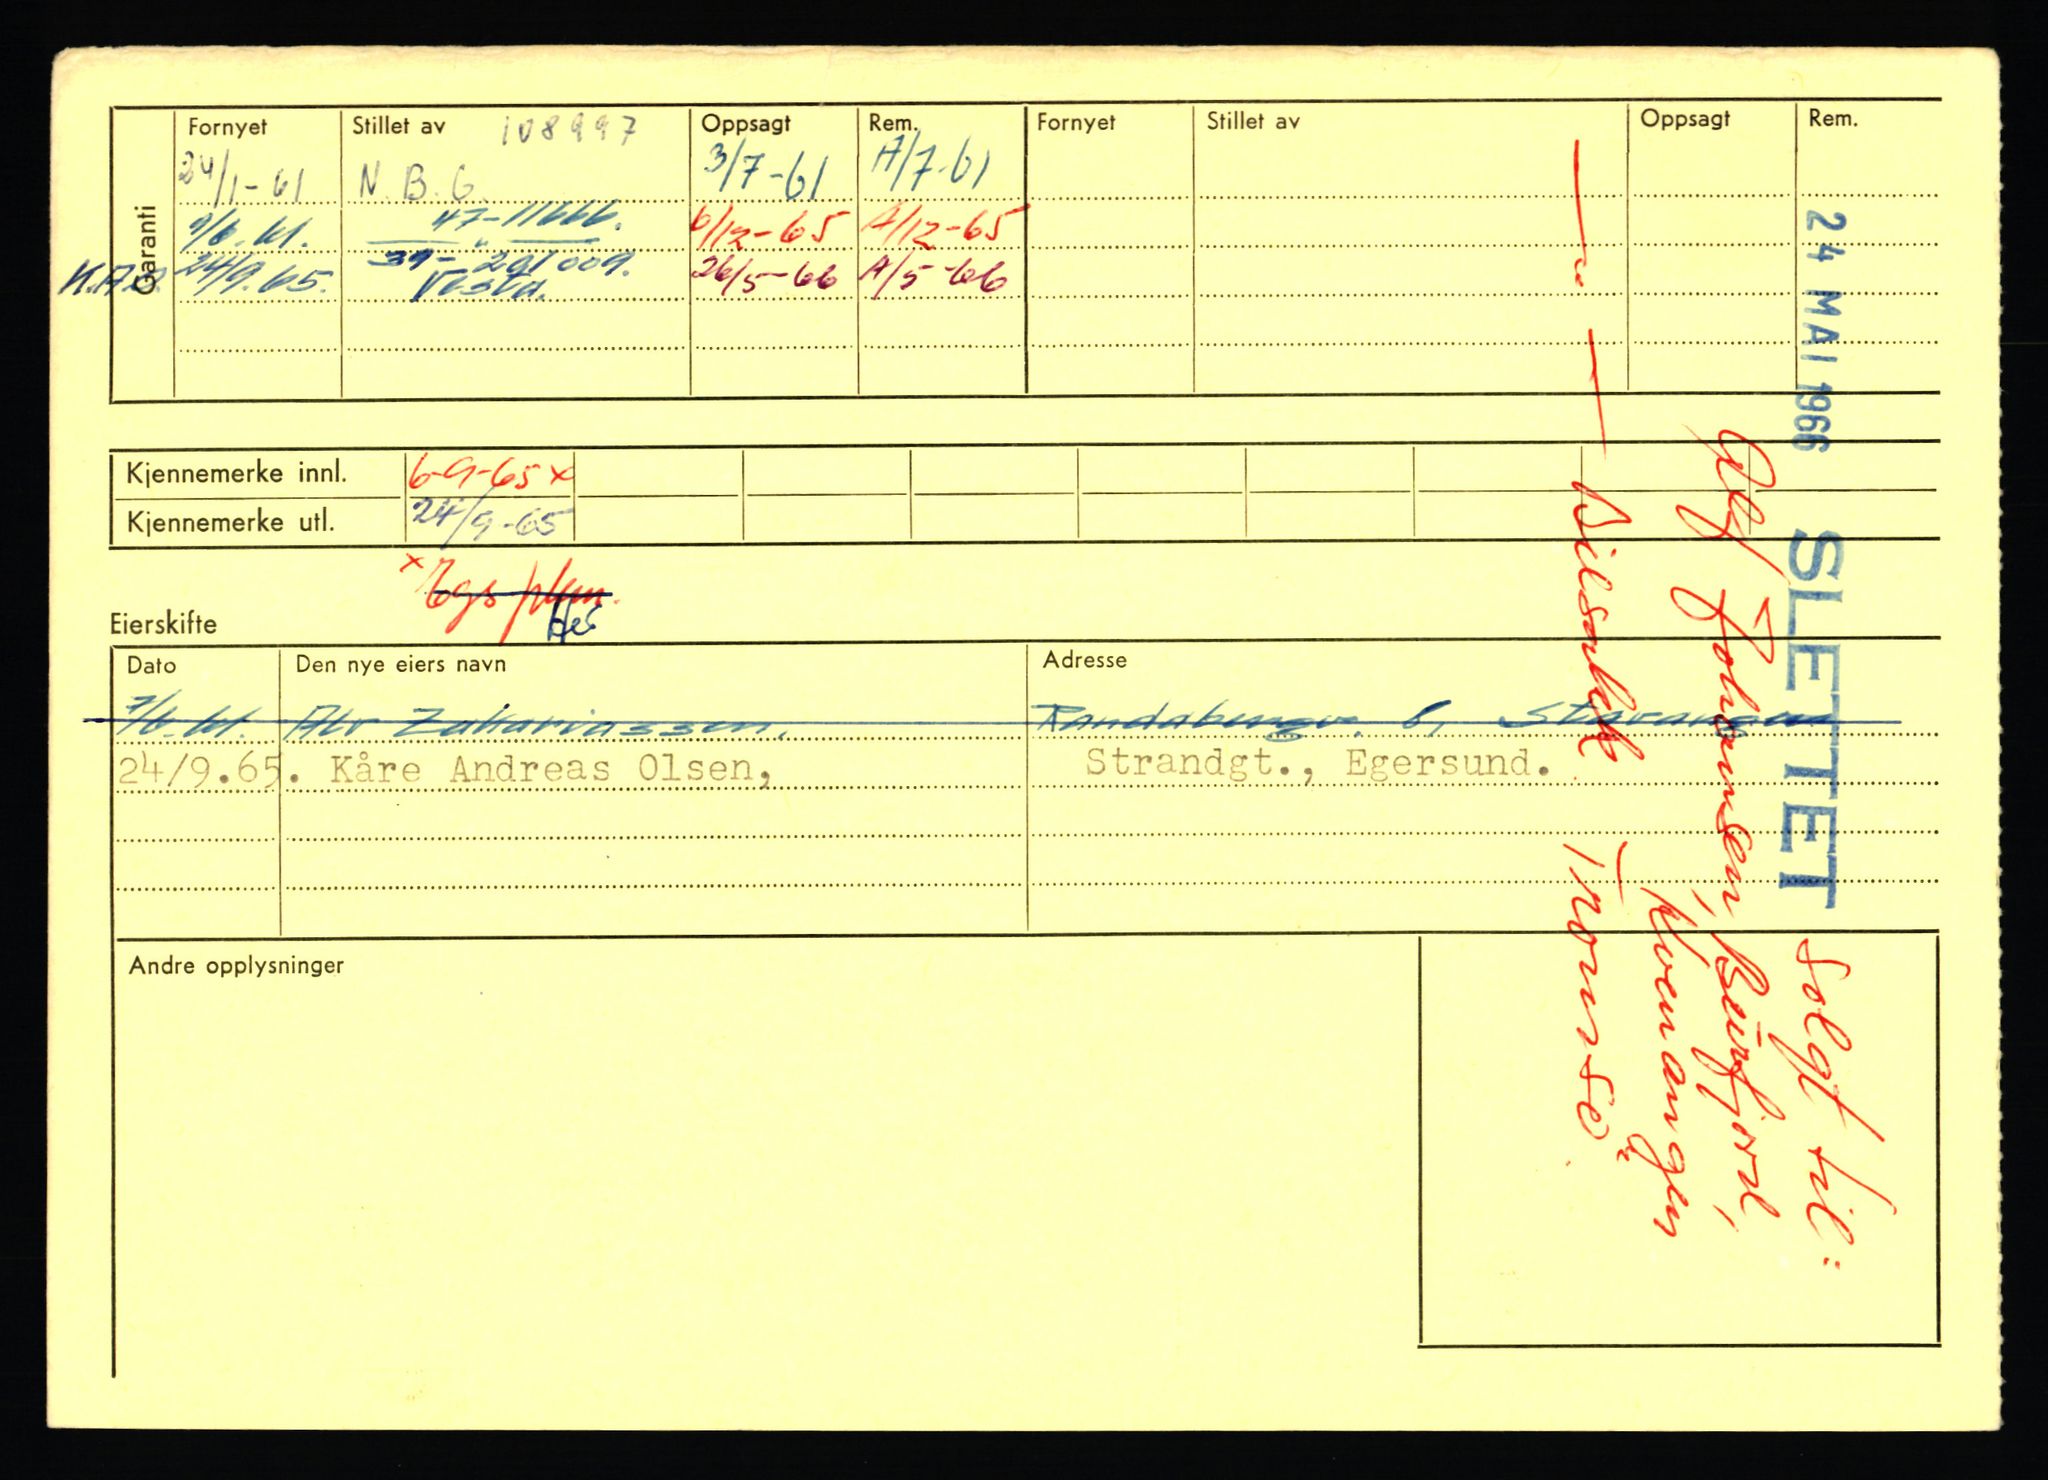 Garanti
Fornyet Stillet av 108997 Oppsagt Rem. Fornyet Stillet av Oppsagt Rem.
24/1-61 N.B.G. 3/7-61 A/7-61
7/6.61. 47-11666. 6/12-65 A/12-65
24/9.65. 39-291009. 26/5-66 A/5-66
Vesta.
Kjennemerke innl. 6-9-65 x
Kjennemerke utl. 24/9-65
x Egs
Eierskifte
Dato Den nye eiers navn Adresse
7/6.61. Alv Zakariassen. Randabergv. 6, Stavanger
24/9.65. Kåre Andreas Olsen, Strandgt., Egersund.
Andre opplysninger
24 MAI 1966 SLETTET Solgt til:
Alf Johansen, Burfjord,
Kvenangen
— — Bilsakk Tromsø